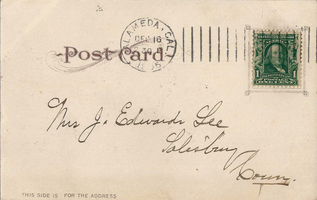 ALAMEDA, CAL.
DEC 16
Post Card
Mrs J. Edwards Lee
Salisbury
Conn.
THIS SIDE IS FOR THE ADDRESS